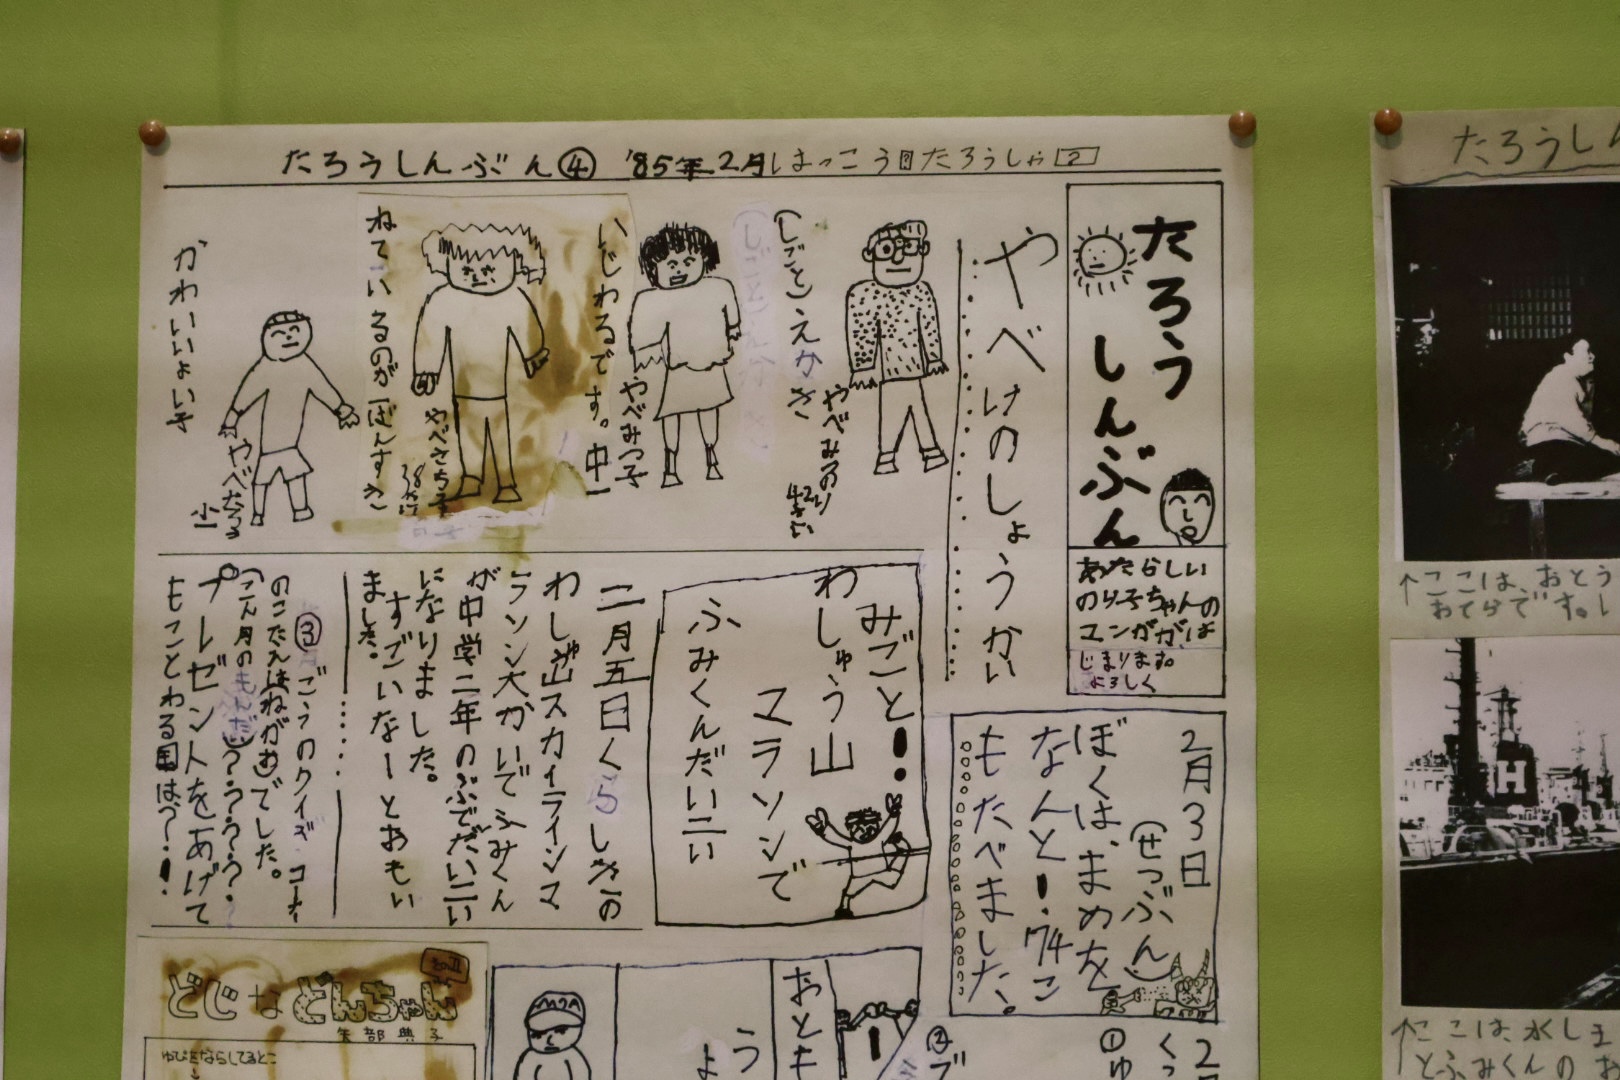 たろうしんぶん④ '85年2月はっこう
たろうしゃ
2
たろう
しんぶん
あたらしい
のり子ちゃんの
マンガがは
じまります。
よろしく
やべけのしょうかい
(しごと)えかき
やべみのり
42さい
いじわるです。中一
やべみつ子
ねているのが一ばんすき
やべさち子
38さい
かわいいよい子
やべたろう
小一
2月3日
(せつぶん)
ぼくは、まめを
なんと!.74こ
もたべました。
みごと!.
わしゅう山
マラソンで
ふみくんだい二い
二月五日くらしきの
わしゅう山スカイラインマ
ラソン大かいでふみくん
が中学二年のぶでだい二い
になりました。
すごいなーとおもい
ました。
③ごうのクイズ・コーナー
のこたえは(ねがむ)でした。
(こん月のもんだい)?????
プレゼントをあげて
もことわる国は?・!
どじなどんちゃん
矢部典子
ゆびをならしてるとこ
おとも
う
よ
②ブ
①ゆ
くっ
たろうし
↑ここは、おとう
おてらです。
↑ここは、水しま
とふみくんのお
H